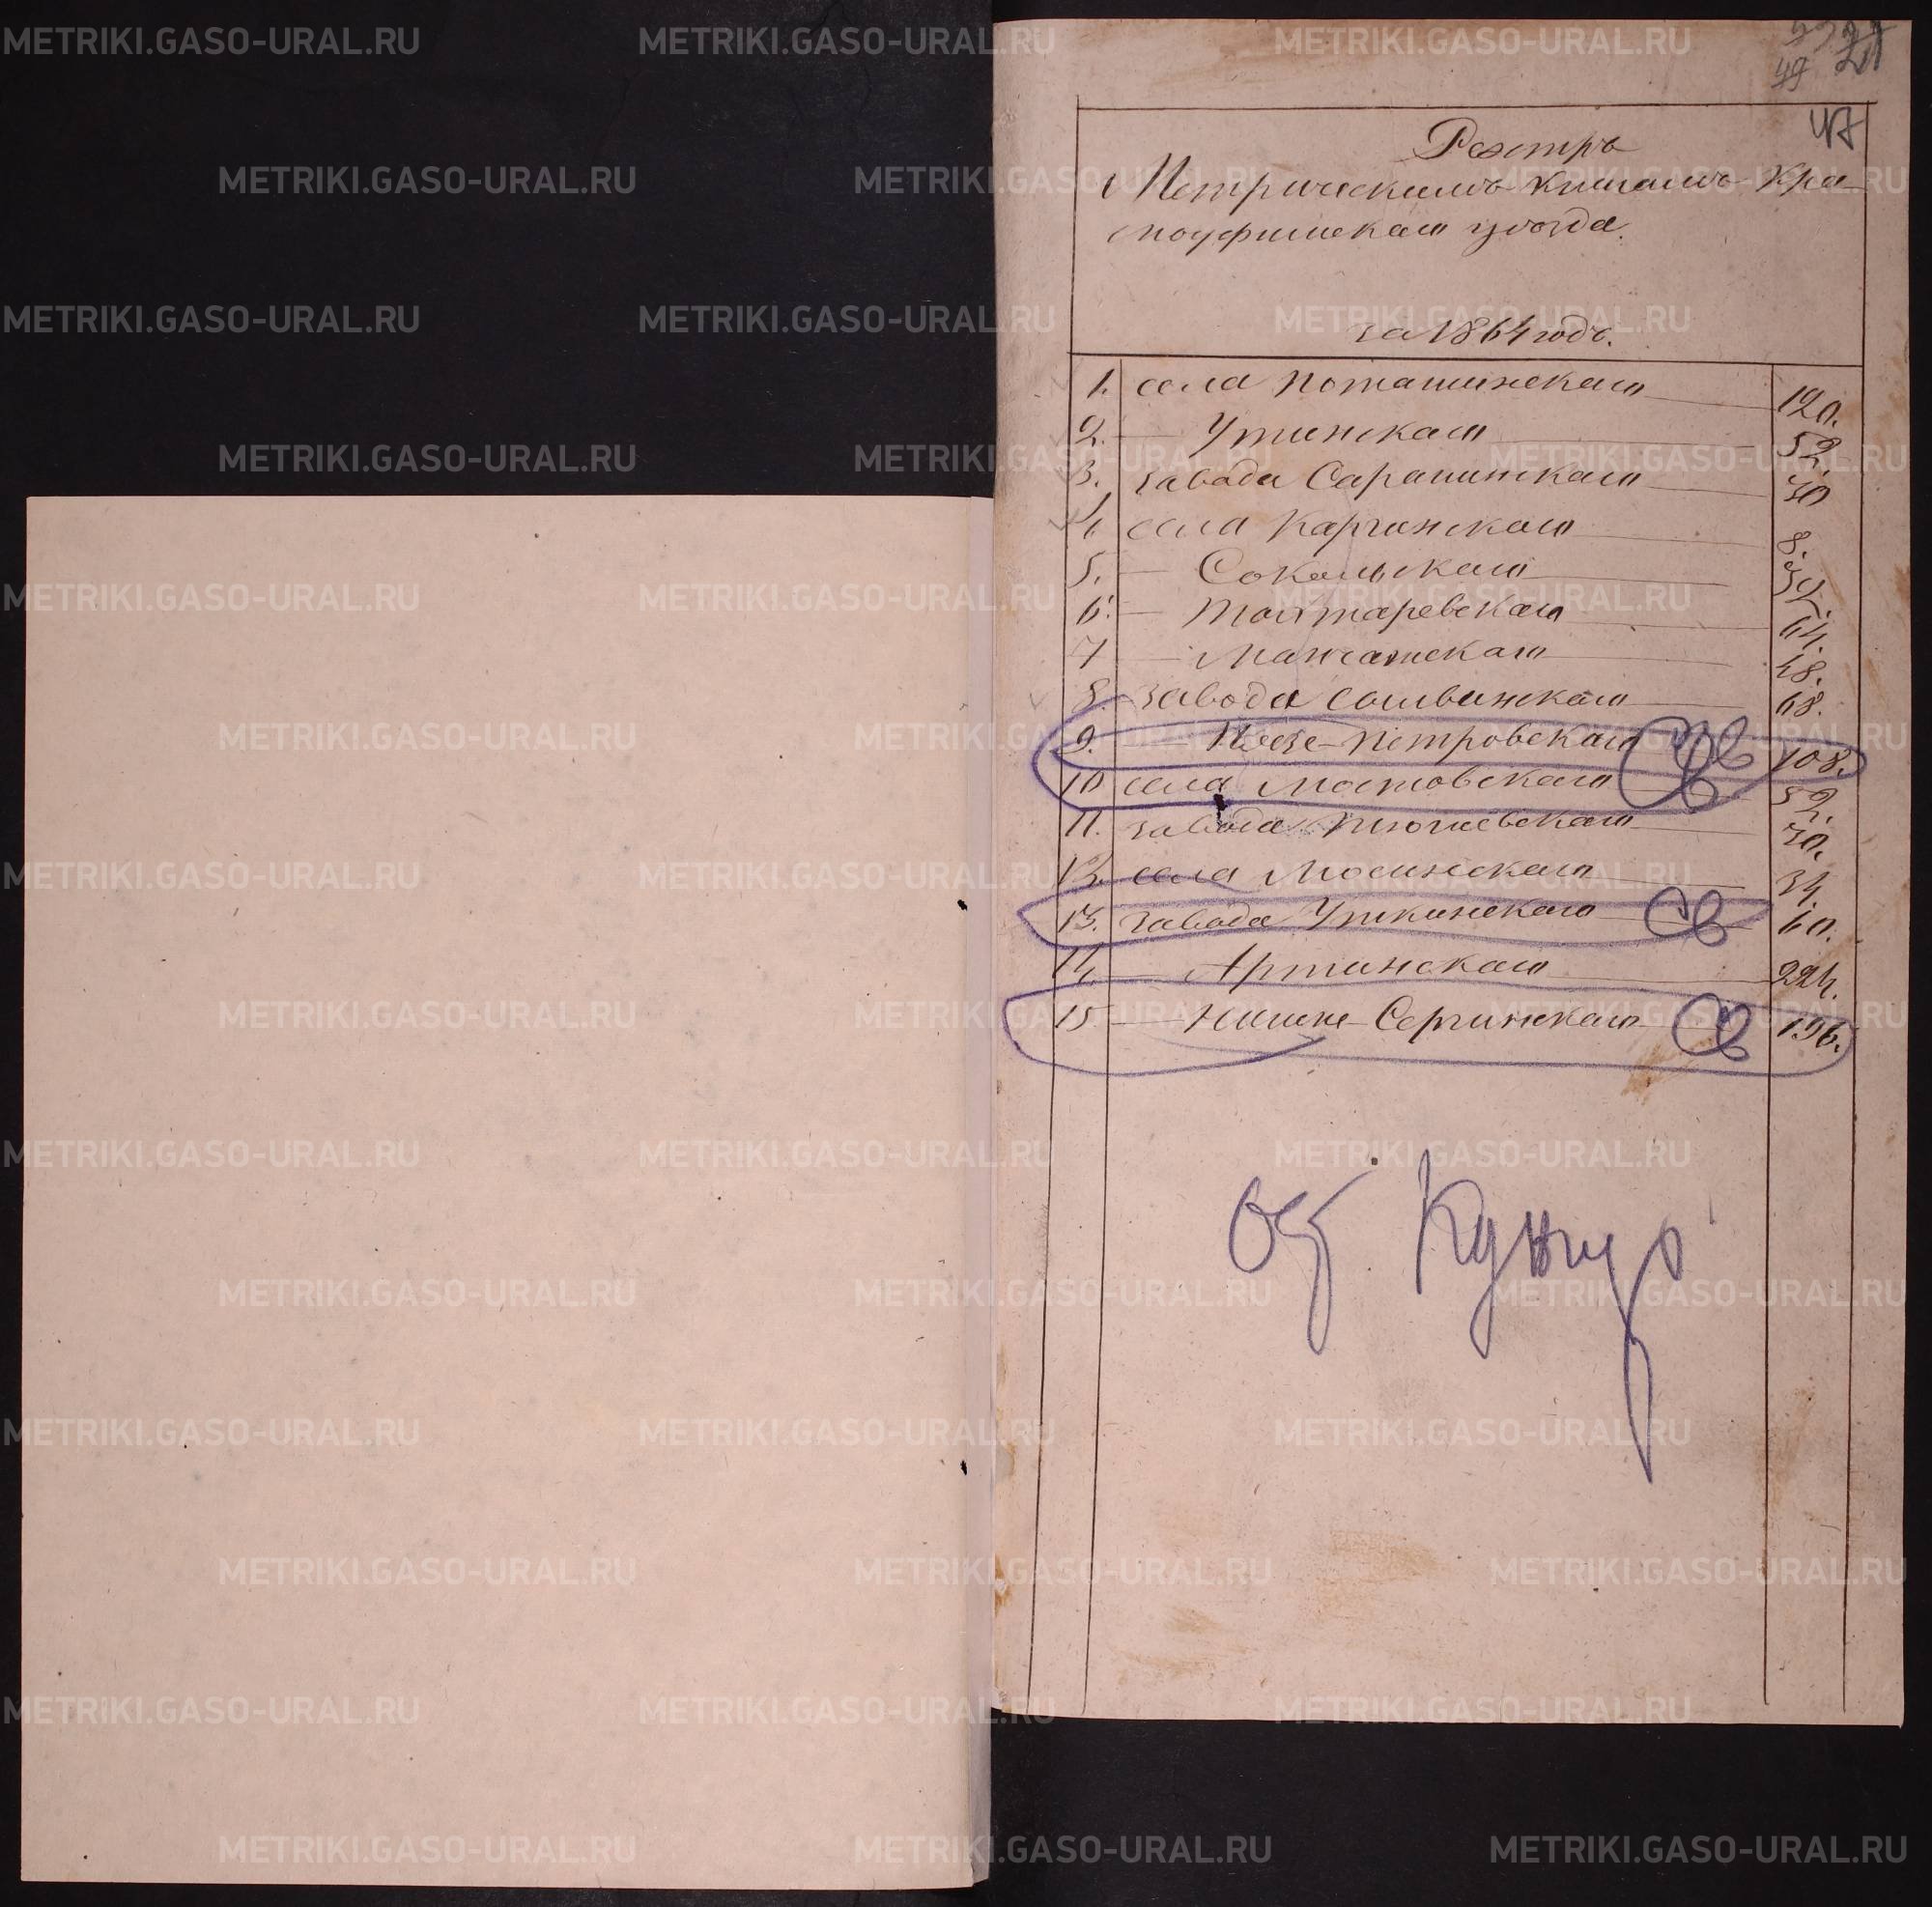 47
Реэстръ
Метрическимъ книгамъ Кра
ноуфимскаго уѣзда.
за 1864 годъ.
1. села Поташинскаго 120.
2. — Утинскаго 52.
3. завода Саранинскаго 30
4. села Каргинскаго 8.
5. — Сокольскаго
6. — Тохтаревскаго 64.
7 — Манчажскаго 48.
8. завода Сылвинскаго 68.
9. — Нязе-Петровскаго 108.
10 села Мостовскаго 52.
11. завода Тюшевскаго 30.
12. села Мосинскаго 34.
13. завода Уткинскаго 60.
14. — Артинскаго 224.
15 — Нижне-Сергинскаго 196.
Кунгур
METRIKI.GASO-URAL.RU